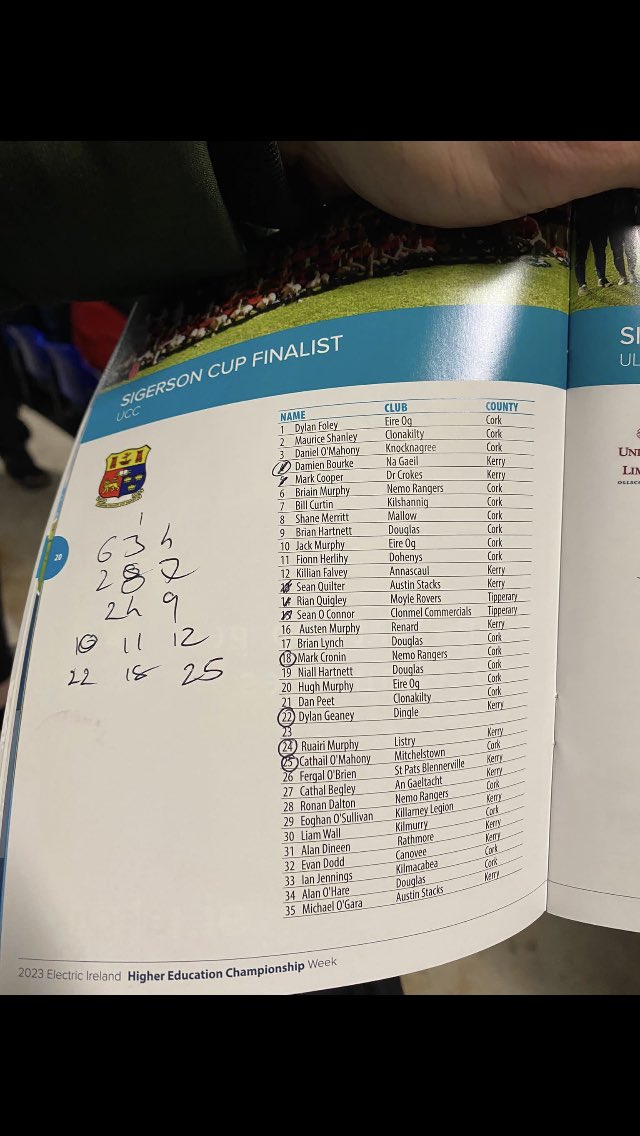 SIGERSON CUP FINALIST
UCC
NAME CLUB COUNTY
1 Dylan Foley Eire Og Cork
2 Maurice Shanley Clonakilty Cork
3 Daniel O'Mahony Knocknagree Cork
4 Damien Bourke Na Gaeil Kerry
5 Mark Cooper Dr Crokes Kerry
6 Briain Murphy Nemo Rangers Cork
7 Bill Curtin Kilshannig Cork
8 Shane Merritt Mallow Cork
9 Brian Hartnett Douglas Cork
10 Jack Murphy Eire Og Cork
11 Fionn Herlihy Dohenys Cork
12 Killian Falvey Annascaul Kerry
13 Sean Quilter Austin Stacks Kerry
14 Rian Quigley Moyle Rovers Tipperary
15 Sean O Connor Clonmel Commercials Tipperary
16 Austen Murphy Renard Kerry
17 Brian Lynch Douglas Cork
18 Mark Cronin Nemo Rangers Cork
19 Niall Hartnett Douglas Cork
20 Hugh Murphy Eire Og Cork
21 Dan Peet Clonakilty Cork
22 Dylan Geaney Dingle Kerry
23
24 Ruairi Murphy Listry Kerry
25 Cathail O'Mahony Mitchelstown Cork
26 Fergal O'Brien St Pats Blennerville Kerry
27 Cathal Begley An Gaeltacht Kerry
28 Ronan Dalton Nemo Rangers Cork
29 Eoghan O'Sullivan Killarney Legion Kerry
30 Liam Wall Kilmurry Cork
31 Alan Dineen Rathmore Kerry
32 Evan Dodd Canovee Cork
33 Ian Jennings Kilmacabea Cork
34 Alan O'Hare Douglas Cork
35 Michael O'Gara Austin Stacks Kerry
1
6 3 4
2 8 7
24 9
10 11 12
22 18 25
20
2023 Electric Ireland Higher Education Championship Week
SI
UL
UN
LIM